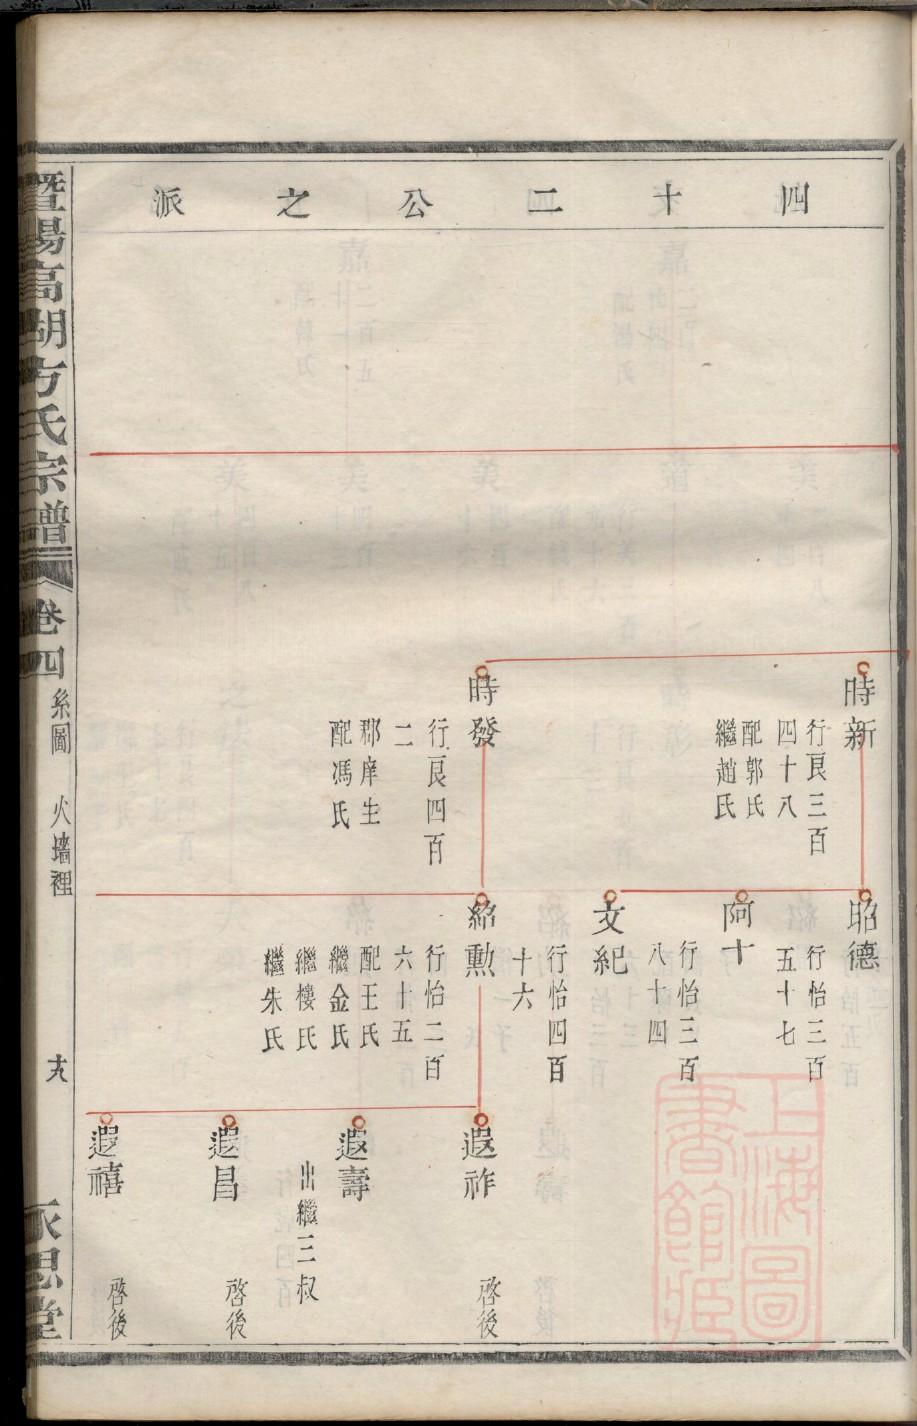 四十二公之派
時新
行艮三百
四十八
配郭氏
繼趙氏
時發
行艮四百
二
郡庠生
配馮氏
昭德
行怡三百
五十七
阿十
行怡三百
八十四
文紀
行怡四百
十六
紹勲
行怡二百
六十五
配王氏
繼金氏
繼樓氏
繼朱氏
遐祚
啓後
遐壽
出繼三叔
遐昌
啓後
遐禧
啓後
暨陽高湖方氏宗譜
卷四
系圖
火墻裡
永思堂
上海圖
書館藏